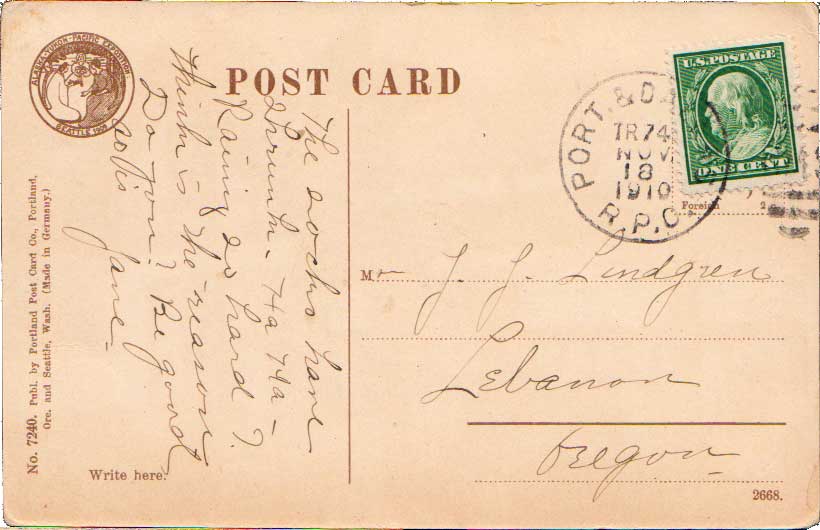 ALASKA-YUKON-PACIFIC EXPOSITION
SEATTLE 1909
POST CARD
The socks have
Shrunk - Ha Ha -
Raining so hard I
think is the reason
Do you? Be good
Jane -
PORT. &
TR74
NOV
18
1910
R.P.O.
U.S. POSTAGE
ONE CENT
Foreign 2
Mr J. J. Lindgren
Lebanon
Oregon
Write here.
No. 7240. Publ. by Portland Post Card Co., Portland,
Ore. and Seattle, Wash. (Made in Germany.)
2668.